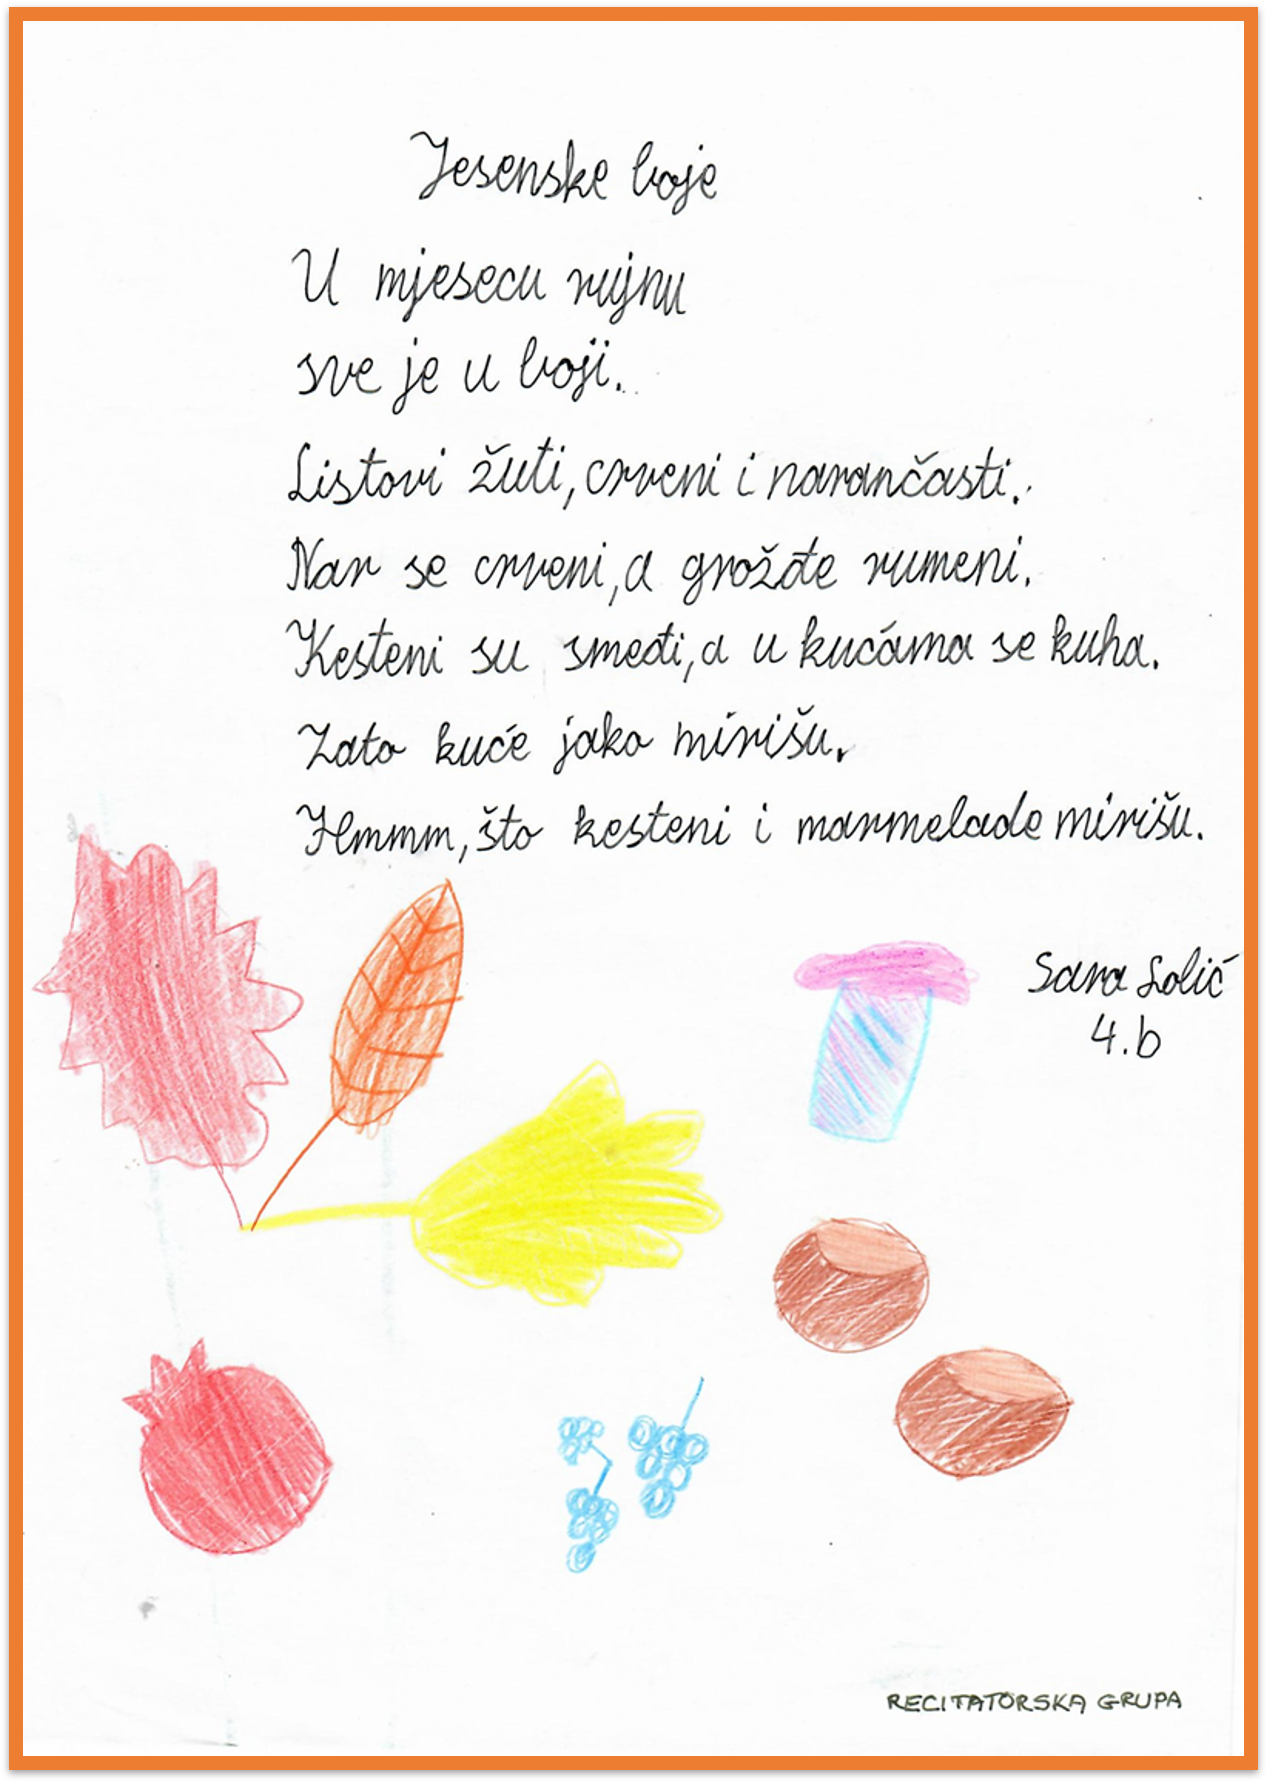 Jesenske boje
U mjesecu rujnu
sve je u boji.
Listovi žuti, crveni i narančasti.
Nar se crveni, a grožđe rumeni.
Kesteni su smeđi, a u kućama se kuha.
Zato kuće jako mirišu.
Hmmm, što kesteni i marmelade mirišu.
Sara Solić
4.b
RECITATORSKA GRUPA